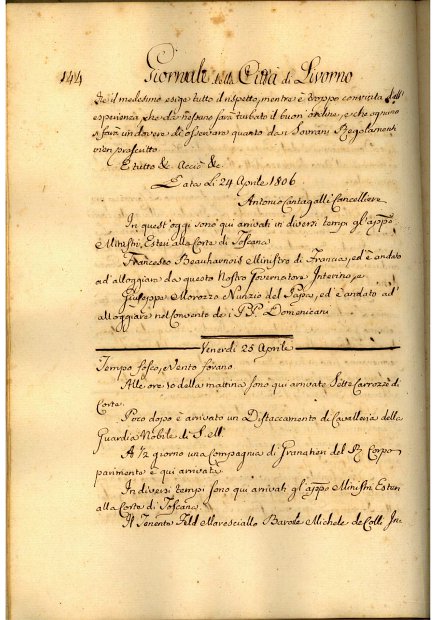 144 Giornale della Città di Livorno
che il medesimo esige tutto il rispetto, mentre è troppo convinta dall'
esperienza, che da nessuno sarà turbato il buon'ordine, e che ognuno
si farà un dovere di osservare quanto dai Sovrani Regolamenti
vien prescritto
E tutto &c. Acciò &c.
Data Li 24 Aprile 1806
Antonio Cantagalli Cancelliere
In quest'oggi sono qui arrivati in diversi tempi gl'appo.
Ministri, Esteri alla Corte di Toscana
Francesco Beauharnois Ministro di Francia, ed è andato
ad'alloggiare da questo Nostro Governatore Interino, e
Giuseppe Morozzo Nunzio del Papa, ed è andato ad'
alloggiare nel Convento de i PP. Domenicani
Venerdì 25 Aprile
Tempo fosco, e Vento forano.
Alle ore 10 della mattina sono qui arrivate Sette Carrozze di
Corte.
Poco dopo è arrivato un Distaccamento di Cavalleria della
Guardia Nobile di S. M.
A ½ giorno una Compagnia di Granatieri del R. Corpo
parimente è qui arrivata
In diversi tempi sono qui arrivati gl'appo. Ministri Esteri
alla Corte di Toscana
Il Tenente Feld Maresciallo Barone Michele de Colli